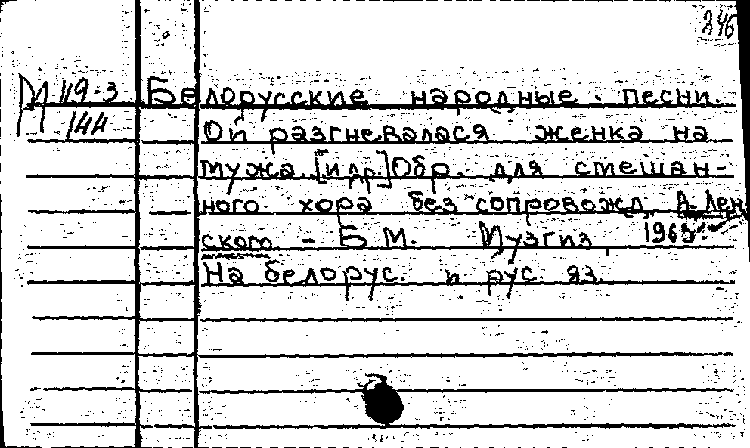 246
М 119-3 Белорусские народные песни.
144 Ой разгневалася женка на
мужа [и др.] Обр. для смешан-
ного хора без сопровожд. А. Лен
ского – Б.М. Музгиз, 1963.
На белорус. и рус. яз.